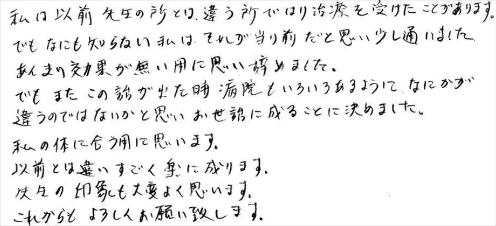 私は以前先生の所とは違う所ではり治療を受けたことがあります。
でもなにも知らない私は、それが当り前だと思い少し通いました
あんまり効果が無い用に思い辞めました。
でもまたこの話が出た時病院もいろいろあるように、なにかが
違うのではないかと思いお世話に成ることに決めました。
私の体に合う用に思います。
以前とは違いすごく楽に成ります。
先生の印象も大変よく思います。
これからもよろしくお願い致します。